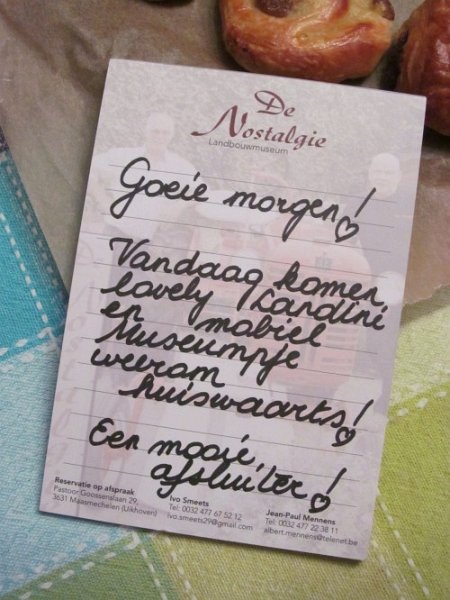 De
Nostalgie
Landbouwmuseum
Goeie morgen!
Vandaag komen
lovely Landini
en mobiel
Museumpje
weeram
huiswaarts!
Een mooie
afsluiter!
Reservatie op afspraak
Pastoor Goossenslaan 29,
3631 Maasmechelen (Uikhoven)
Ivo Smeets
Tel: 0032 477 67 52 12
ivo.smeets29@gmail.com
Jean-Paul Mennens
Tel: 0032 477 22 38 11
albert.mennens@telenet.be